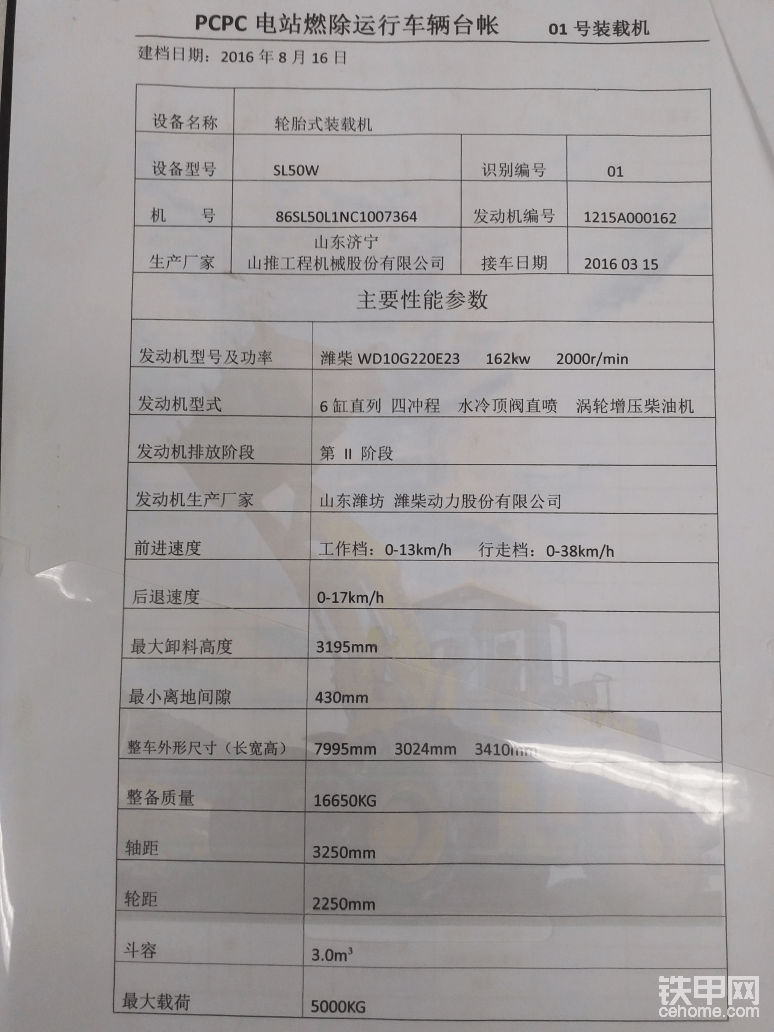 PCPC 电站燃除运行车辆台帐 01 号装载机
建档日期：2016 年 8 月 16 日
设备名称 轮胎式装载机
设备型号 SL50W 识别编号 01
机 号 86SL50L1NC1007364 发动机编号 1215A000162
山东济宁
生产厂家 山推工程机械股份有限公司 接车日期 2016 03 15
主要性能参数
发动机型号及功率 潍柴 WD10G220E23 162kw 2000r/min
发动机型式 6 缸直列 四冲程 水冷顶阀直喷 涡轮增压柴油机
发动机排放阶段 第 II 阶段
发动机生产厂家 山东潍坊 潍柴动力股份有限公司
前进速度 工作档：0-13km/h 行走档：0-38km/h
后退速度 0-17km/h
最大卸料高度 3195mm
最小离地间隙 430mm
整车外形尺寸（长宽高） 7995mm 3024mm 3410mm
整备质量 16650KG
轴距 3250mm
轮距 2250mm
斗容 3.0m³
最大载荷 5000KG
铁甲网
cehome.com